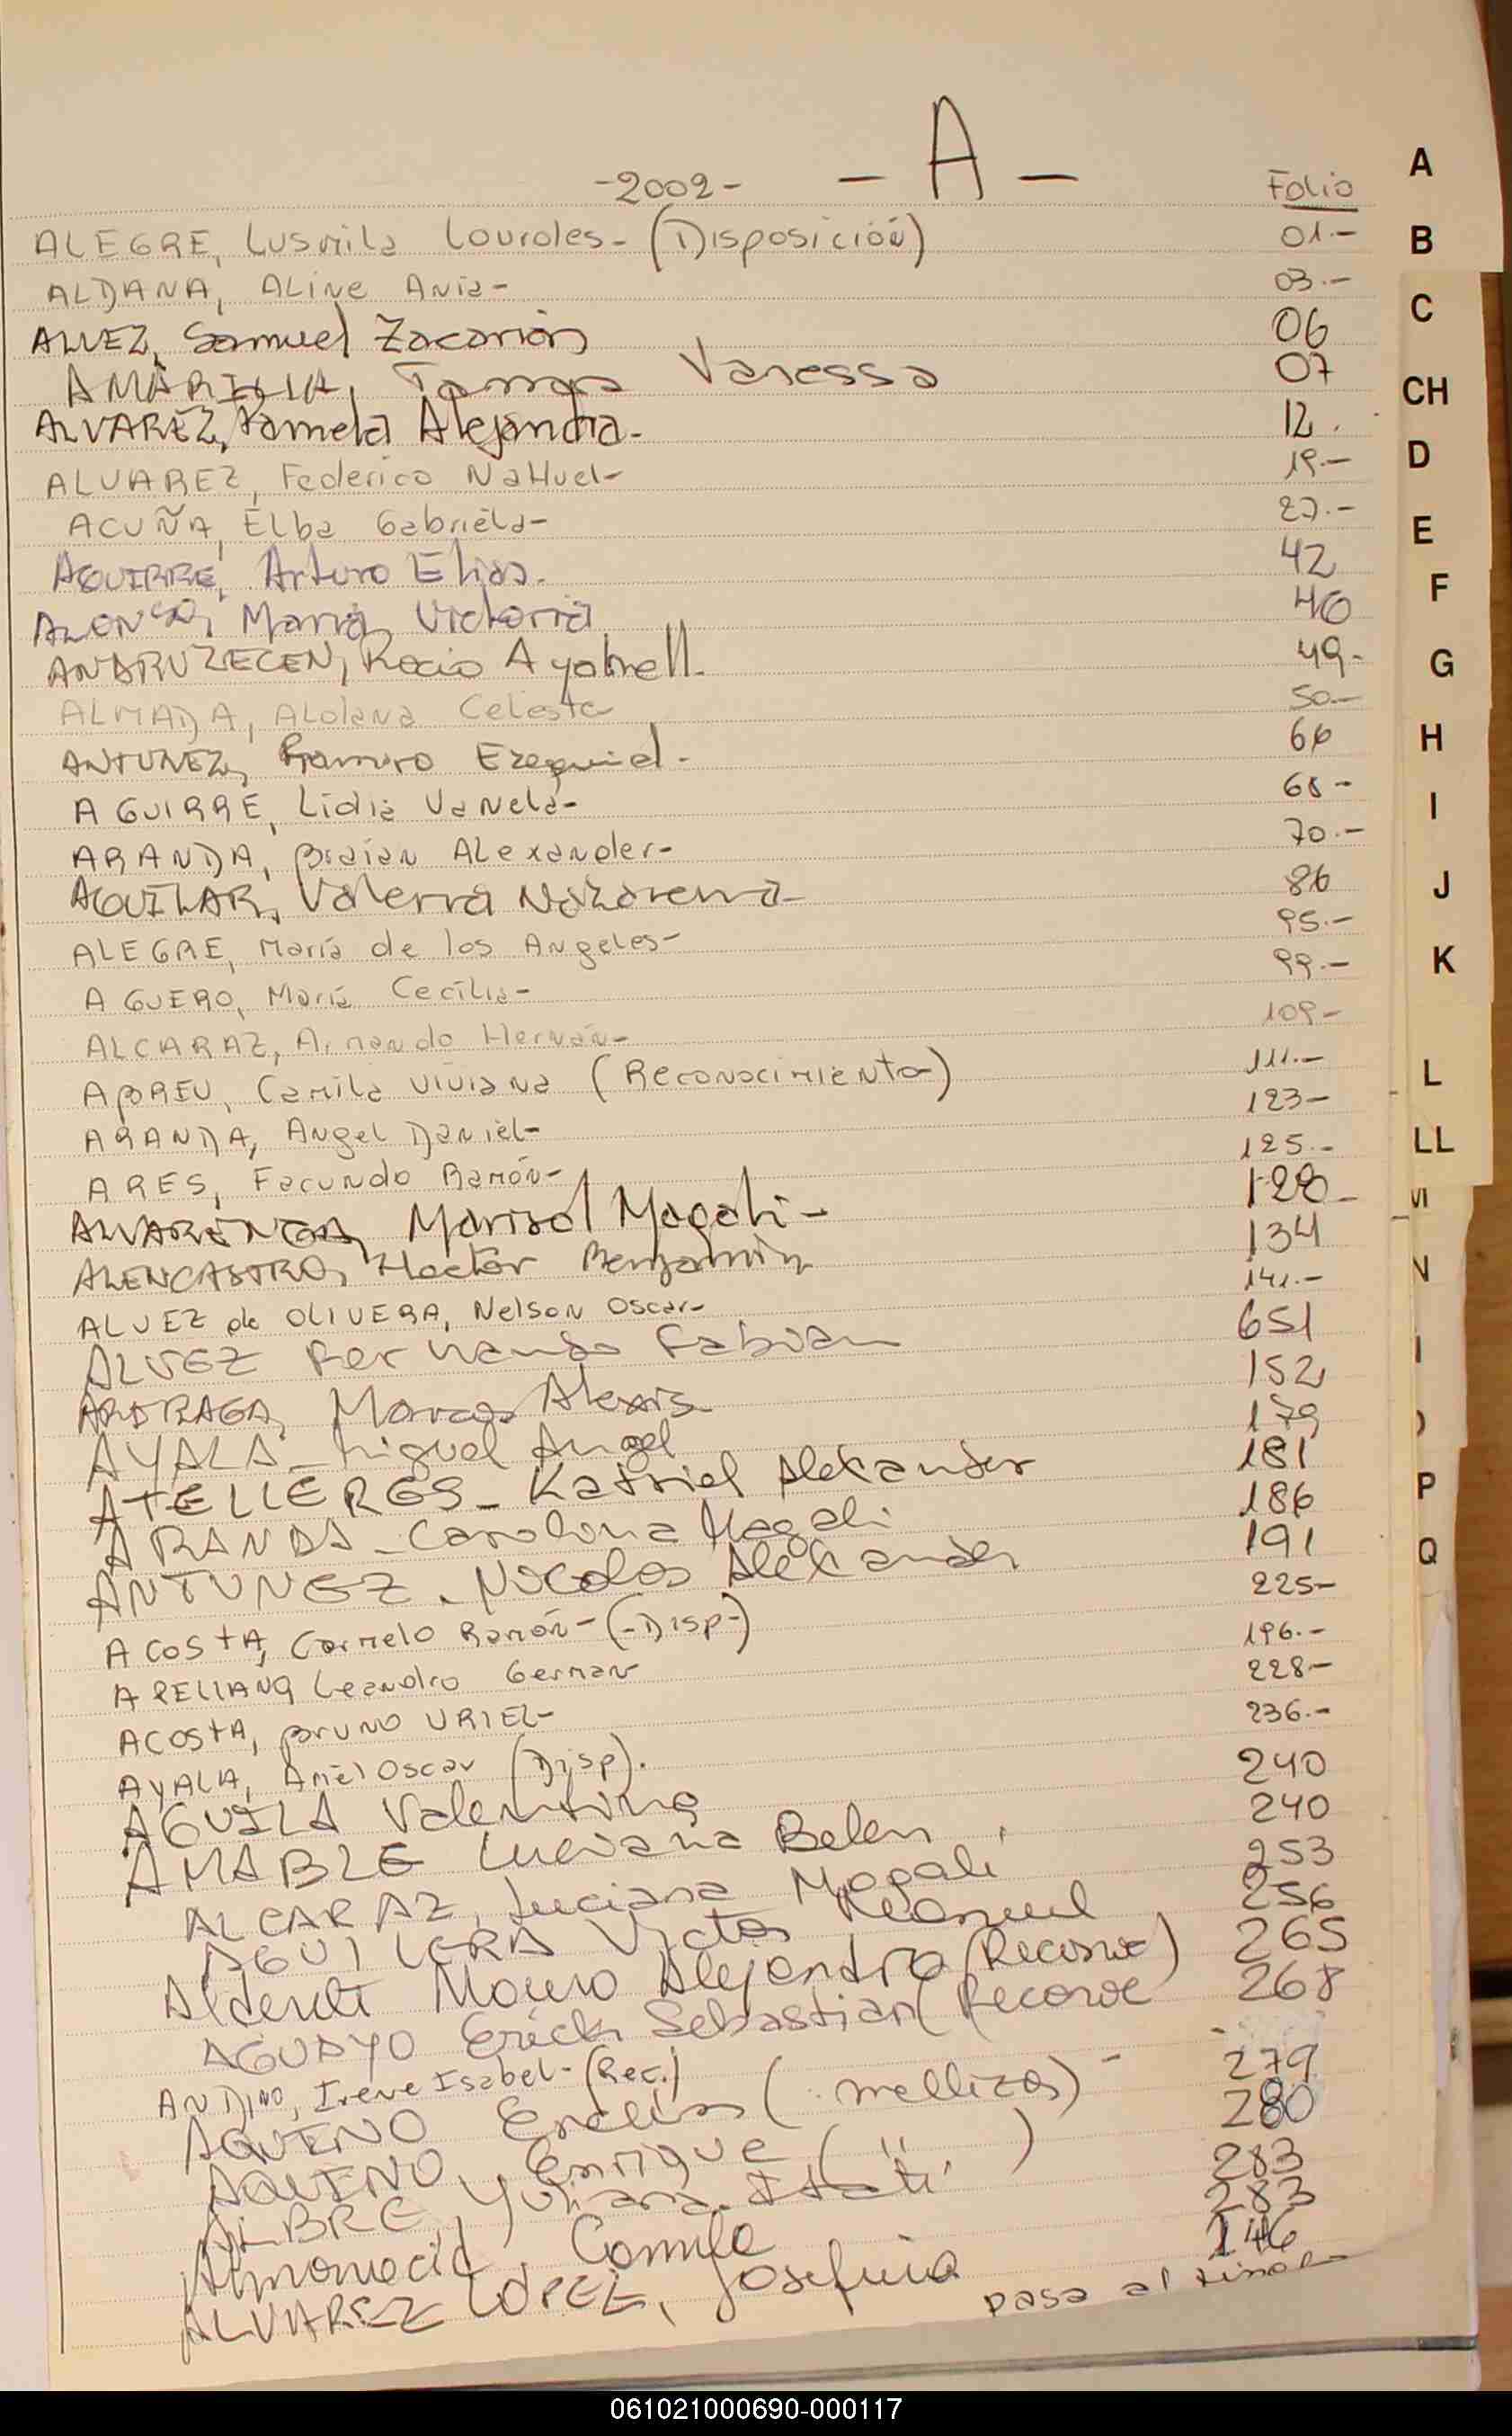 -2002- - A - Folio
ALEGRE, Lusmila Lourdes - (Disposición) 01.-
ALDANA, Aline Ania - 03.-
ALVEZ, Samuel Zacarías 06
AMARILLA, Vanessa 07
ALVAREZ, Pamela Alejandra - 12.
ALVAREZ, Federico Nahuel - 19.-
ACUÑA, Elba Gabriela - 27.-
AGUIRRE, Arturo Elias. 42
ALONSO, María Victoria 46
Rocio 49-
ALMADA, Aldana Celeste 50.-
ANTUNEZ, Ramiro Ezequiel - 66
AGUIRRE, Lidia Vanela - 68 -
ARANDA, Braian Alexander - 70.-
AGUILAR, Valeria Nazarena - 86
ALEGRE, María de los Angeles - 95.-
AGUERO, María Cecilia - 99.-
ALCARAZ, Armando Hernán - 109 -
ABREU, Camila Viviana (Reconocimiento) 111.-
ARANDA, Angel Daniel - 123 -
ARES, Facundo Ramón - 125.-
ALVARENGA, Marisol Magali - 128 -
ALENCASTRO, Hector Benjamin 134
ALVEZ de OLIVERA, Nelson Oscar - 141.-
ALVEZ Fernando Fabian 651
Marcos Alexis 152
AYALA - Miguel Angel 179
ATELLERES - Katriel Alexander 181
ARANDA - Carolina Magali 186
ANTUNEZ - Nicolas Alexander 191
ACOSTA, Carmelo Ramón - (-Disp-) 225 -
Leandro German 196.-
ACOSTA, Bruno URIEL - 228 -
AYALA, Ariel Oscar (Disp). 236.-
AGUILA Valentina 240
AMABLE Luciana Belen 240
ALCARAZ, Luciana Magali 253
AGUILERA Victor Manuel 256
Mauro Alejandro (Reconoc) 265
AGUAYO Erick Sebastian (Reconoc 268
ANDINO, Irene Isabel - (Rec.)
AQUINO (mellizos) - 279
AQUINO, Enrique ( " ) 280
ALBRE, Yuliana Itatí 283
Almomacid, Camila 283
ALVAREZ LOPEZ, Josefina 146
pasa al final
A
B
C
CH
D
E
F
G
H
I
J
K
L
LL
M
N
P
Q
061021000690-000117